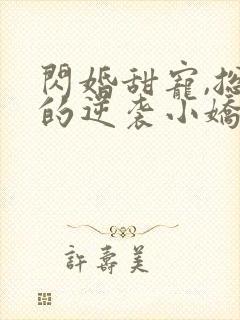 閃婚甜寵,總
的逆袭小嬌
許壽美